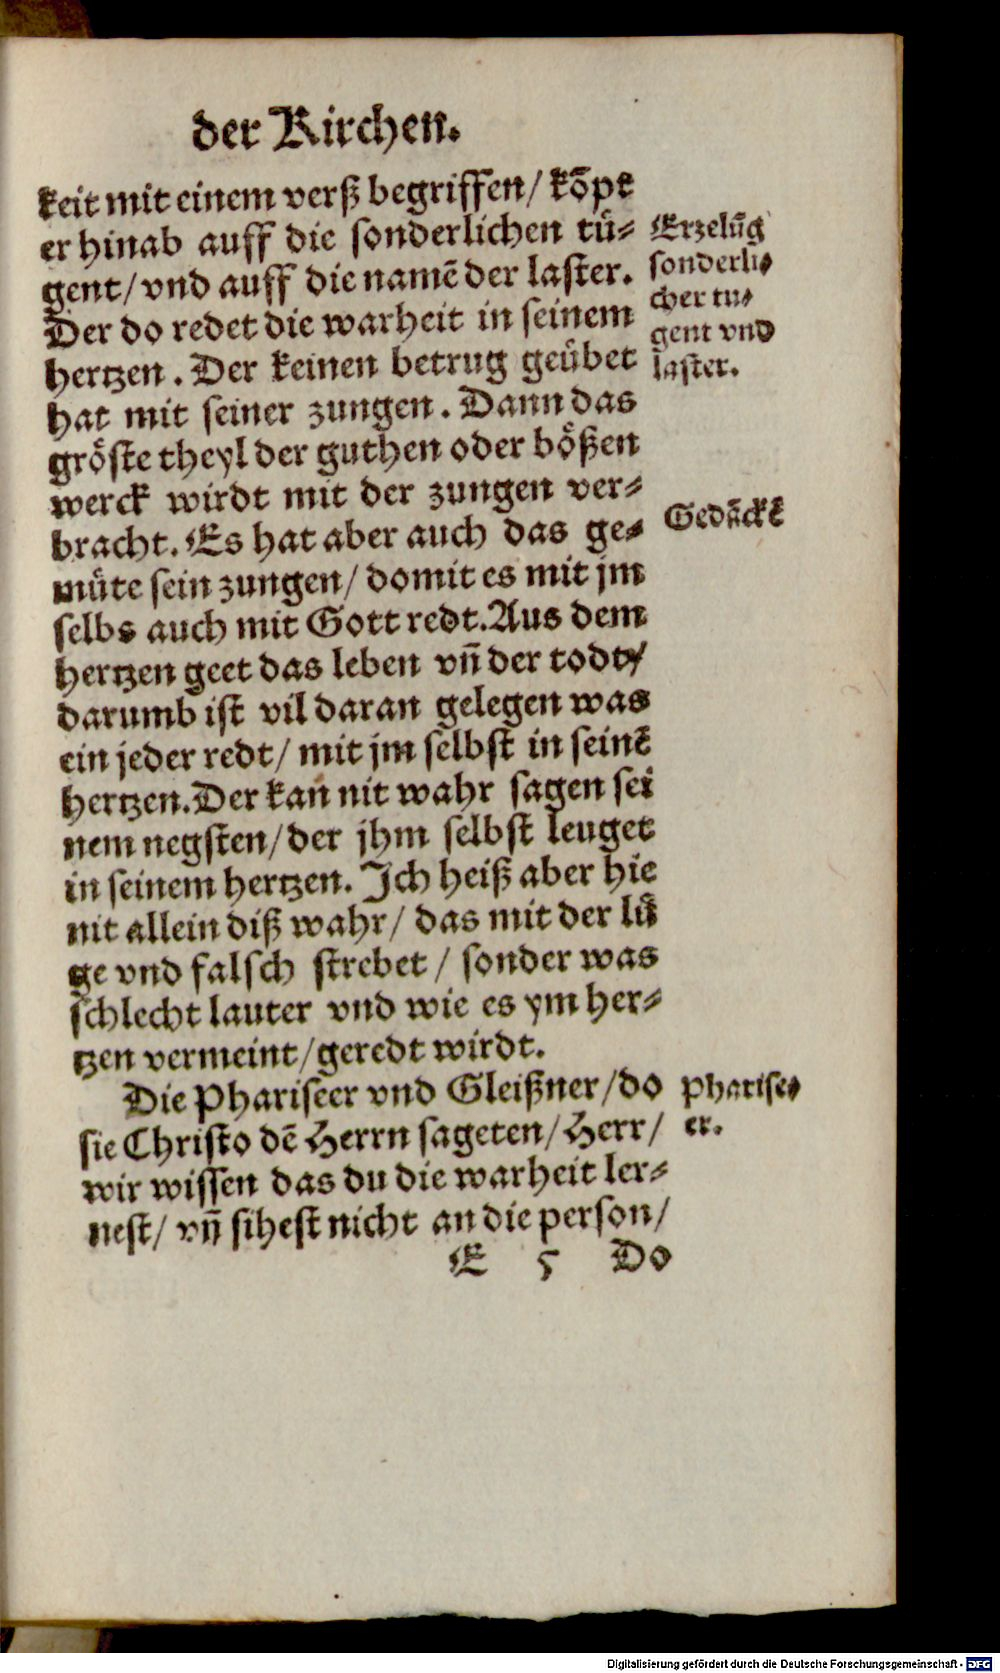 der Kirchen.
keit mit einem verß begriffen/ kõpt
er hinab auff die sonderlichen tü-
gent/ vnd auff die namẽ der laster.
Der do redet die warheit in seinem
hertzen. Der keinen betrug geübet
hat mit seiner zungen. Dann das
gröste theyl der guthen oder bößen
werck wirdt mit der zungen ver-
bracht. Es hat aber auch das ge-
müte sein zungen/ domit es mit jm
selbs auch mit Gott redt. Aus dem
hertzen geet das leben vñ der todt/
darumb ist vil daran gelegen was
ein jeder redt/ mit jm selbst in seinẽ
hertzen. Der kañ nit wahr sagen sei
nem negsten/ der jhm selbst leuget
in seinem hertzen. Ich heiß aber hie
nit allein diß wahr/ das mit der lü
ge vnd falsch strebet/ sonder was
schlecht lauter vnd wie es ym her-
tzen vermeint/ geredt wirdt.
Die Phariseer vnd Gleißner/ do
sie Christo dẽ Herrn sageten/ Herr/
wir wissen das du die warheit ler-
nest/ vñ sihest nicht an die person/
E 5 Do
Erzelũg
sonderli-
cher tu-
gent vnd
laster.
Gedãckẽ
Pharise-
er.
Digitalisierung gefördert durch die Deutsche Forschungsgemeinschaft - DFG